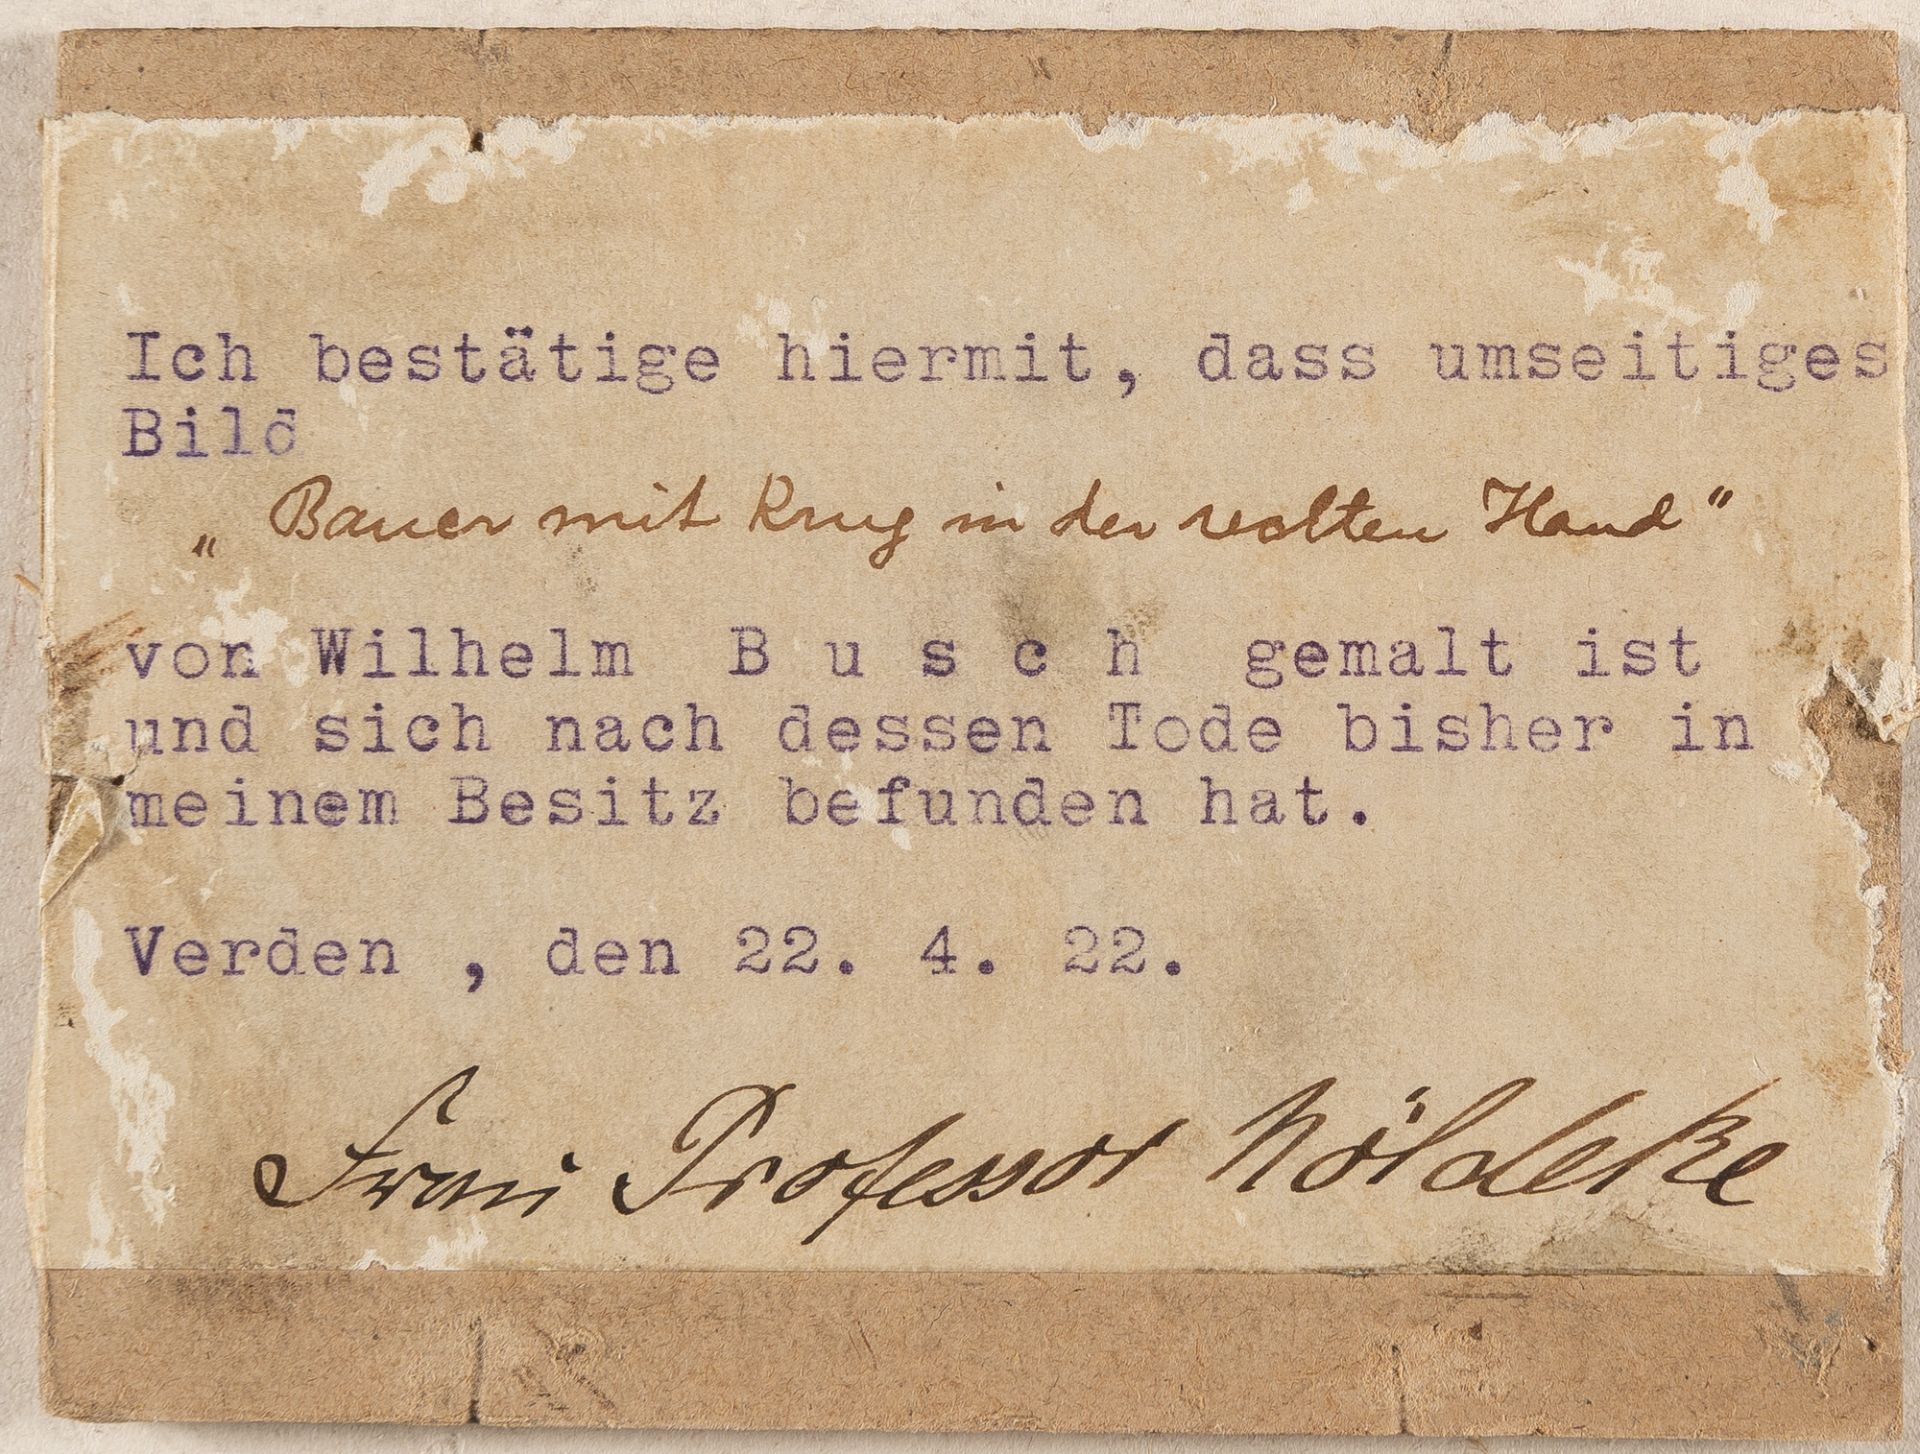 Ich bestätige hiermit, dass umseitiges
Bild
„Bauer mit Krug in der rechten Hand"
von Wilhelm B u s c h gemalt ist
und sich nach dessen Tode bisher in
meinem Besitz befunden hat.
Verden , den 22. 4. 22.
Frau Professor Nöldeke